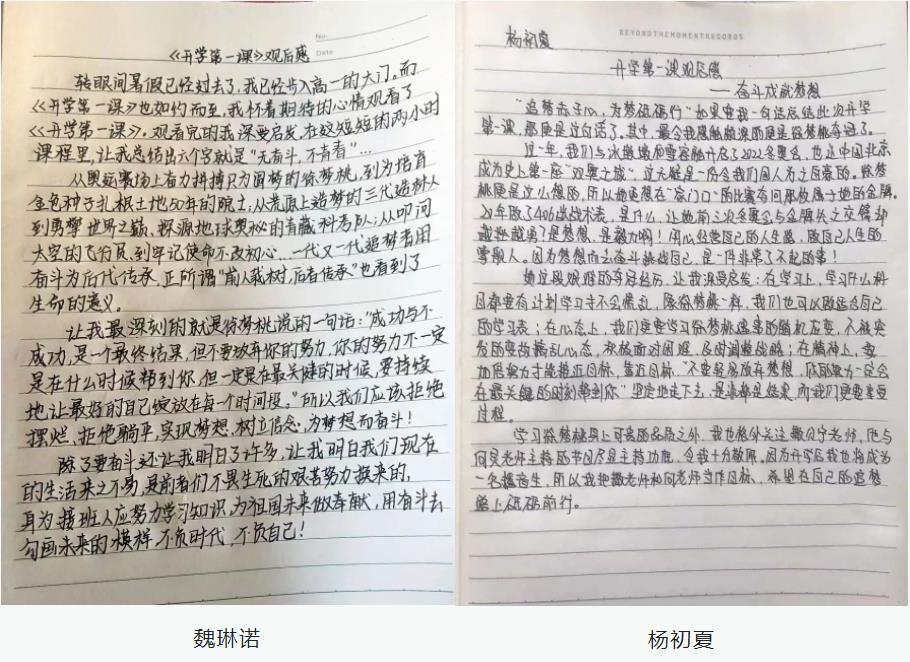 No.
Date
《开学第一课》观后感
转眼间暑假已经过去了,我已经步入高一的大门。而
《开学第一课》也如约而至,我怀着期待的心情观看了
《开学第一课》。观看完的我深受启发,在这短短的两小时
课程里,让我总结出六个字就是"无奋斗,不青春"…
从奥运赛场上奋力拼搏只为圆梦的徐梦桃,到为培育
金色种子扎根土地50年的院士;从荒原上追梦的三代造林人
到勇攀世界之巅,探源地球奥秘的青藏科考队;从叩问
太空的飞行员,到牢记使命不改初心…一代又一代追梦者用
奋斗为后代传承,正所谓"前人栽树,后者传承"也看到了
生命的意义。
让我最深刻的就是徐梦桃说的一句话:"成功与不
成功,是一个最终结果,但不要放弃你的努力,你的努力不一定
是在什么时候帮到你,但一定是在最关键的时候,要持续
地让最好的自己绽放在每一个时间段。"所以我们应该拒绝
摆烂,拒绝躺平,实现梦想,树立信念,为梦想而奋斗!
除了要奋斗还让我明白了许多,让我明白我们现在
的生活来之不易,是前者们不畏生死的艰苦努力换来的,
身为接班人应努力学习知识,为祖国未来做奉献,用奋斗去
勾画未来的模样,不负时代,不负自己!
魏琳诺
杨初夏
BEYONDTHEMOMENTRECORDS
开学第一课观后感
——奋斗成就梦想
"追梦赤子心,为梦砥砺行"如果要我一句话总结此次开学
第一课,那便是这句话了。其中,最令我感触颇深的便是徐梦桃夺冠了。
过一年,我们与冰墩墩和雪容融开启了2022冬奥会,也让中国北京
成为史上第一座"双奥之城"。这无疑是一份令我们国人为之自豪的。徐梦
桃便是这么想的,所以她更想在"家门口"的比赛夺回那枚属于她的金牌。
是什么,让她前三次冬奥会与金牌失之交臂却
越挫越勇?是梦想,是毅力啊!用心经营自己的人生路,做自己人生的
掌舵人。因为梦想而去奋斗挑战自己,是一件非常了不起的事!
她这段艰难的夺冠经历,让我深受启发:在学习上,学习什么科
目都要有计划学习才不会慌乱,像徐梦桃一样,我们也可以做适合自己
的学习表;在心态上,我们更要学习徐梦桃遇事的随机应变,不被突
发的变故搞乱心态,积极面对困难,及时调整战略;在精神上,要
加倍努力才能接近目标,靠近目标,"不要轻易放弃梦想,你的努力一定会
在最关键的时刻帮到你"坚定地走下去,是读都是结果,而我们更要享受
过程。
学习徐梦桃身上可贵的品质之外,我也格外关注撒贝宁老师,他与
何炅老师主持的节目尽显主持功底,令我十分敬佩。因为开学后我也将成为
一名播音生,所以我把撒老师和何老师当作目标,希望在自己的追梦
路上砥砺前行。
杨初夏